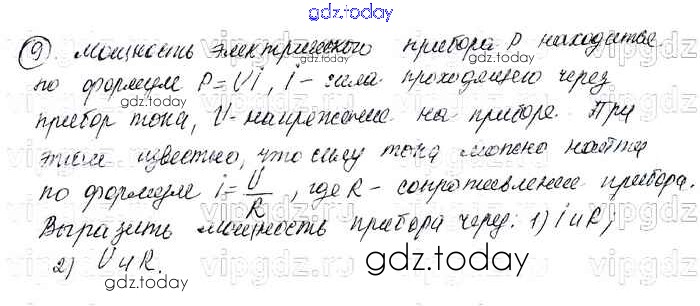 gdz.today
9. Мощность электрического прибора P находится
по формуле P=Ui, i - сила проходящего через
gdz.today
gdz.today
прибор тока, U - напряжение на приборе. При
этом известно, что силу тока можно найти
gdz.today
gdz.today
по формуле i=U/R, где R - сопротивление прибора.
Выразить мощность прибора через: 1) i и R;
2) U и R.
gdz.today
gdz.today
vipgdz.ru